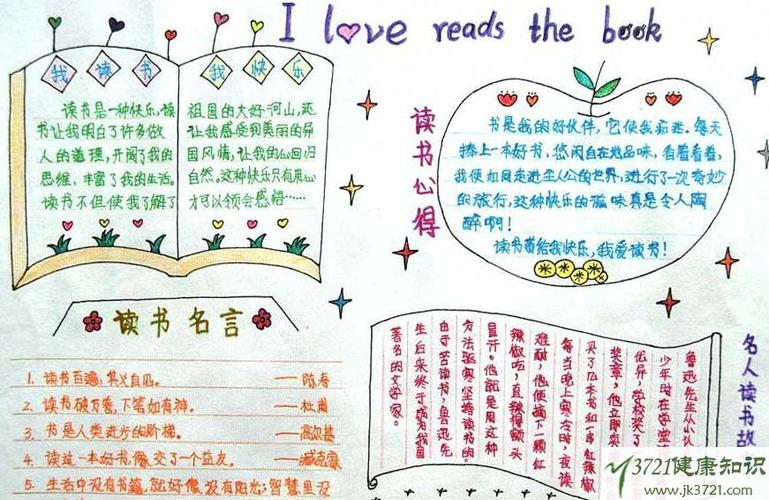 I love reads the book
我读书
我快乐
读书是一种快乐,读
书让我明白了许多做
人的道理,开阔了我的
思维,丰富了我的生活。
读书不但使我了解了
祖国的大好河山,还
让我感受到美丽的异
国风情,让我的心回归
自然。这种快乐只有用心
才可以领会感悟……
读书心得
书是我的好伙伴,它使我痴迷。每天
捧上一本好书,悠闲自在地品味,看着看着,
我便如同走进主人公的世界,进行了一次奇妙
的旅行,这种快乐的滋味真是令人陶
醉啊!
读书带给我快乐,我爱读书!
读书名言
1. 读书百遍,其义自见。 ——陈寿
2. 读书破万卷,下笔如有神。 ——杜甫
3. 书是人类进步的阶梯。 ——高尔基
4. 读过一本好书,像交了一个益友。 ——臧克家
5. 生活中没有书籍,就好像没有阳光;智慧里没
名人读书故
鲁迅先生从小认
少年时在学堂
优异,学校奖了
奖章,他立即卖
买了几本书和一串红辣椒
每当晚上寒冷时,夜读
难耐,他便摘下一颗红
辣椒吃,直辣得额头
冒汗。他就是用这种
方法驱寒坚持读书的。
由于苦读书,鲁迅先
生后来终于成为我国
著名的文学家。
3721健康知识
www.jk3721.com